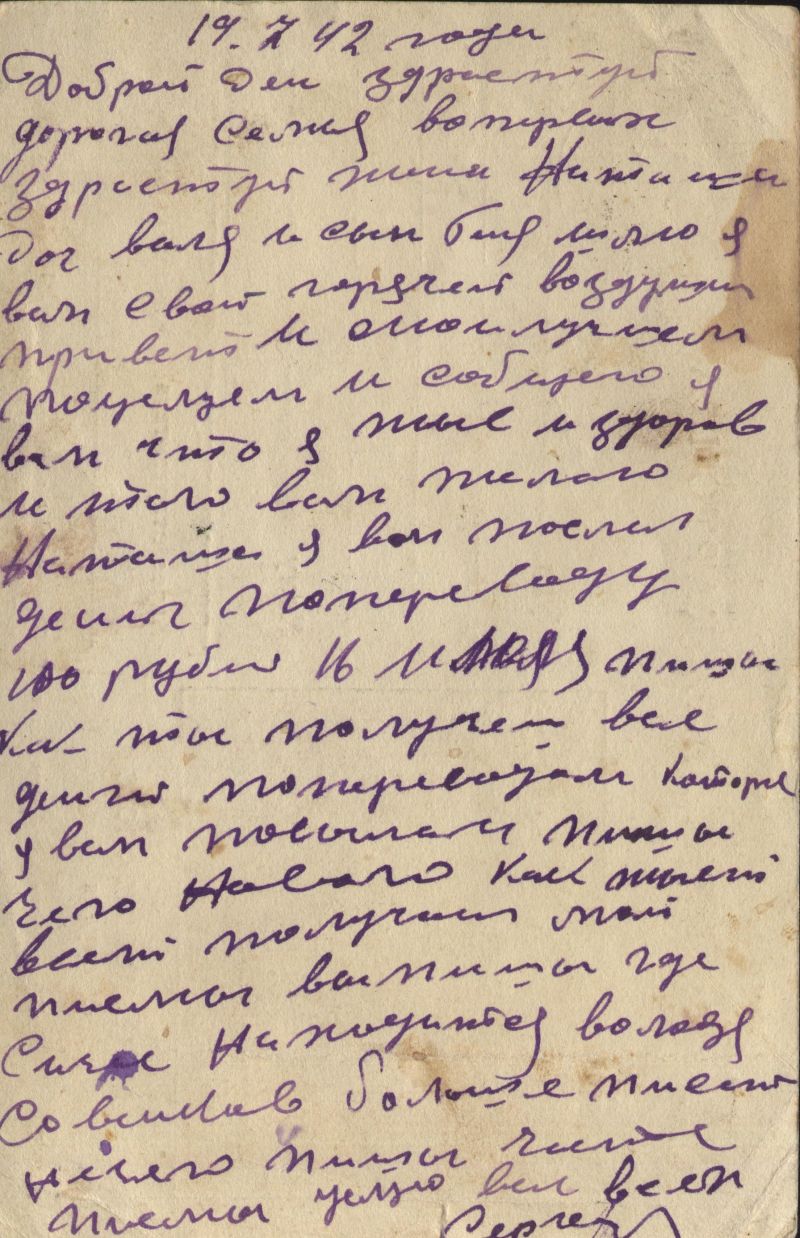 19. 7 42 года
Доброй Ден здраствуй
дорогая Семия воперьвих
здраствуй жина Наташа
Доч валя и сын шлю я
вам Свой горячей воздушни
привет И смоилучшем
поцелуем И собщаю я
вам что я жыв и здоров
и того вам желаю
Наташа я вам послал
денги попереводу
100 рублей 16 Июля пишы
как ты получеш все
денги попереводам каторые
я вам посылаю пишы
чего Нового как жывет
всели получиш мои
писмы выпишы где
Сичас Находится володя
больше писат
нечего пишы чаще
писмы целую вас всех
Сергей